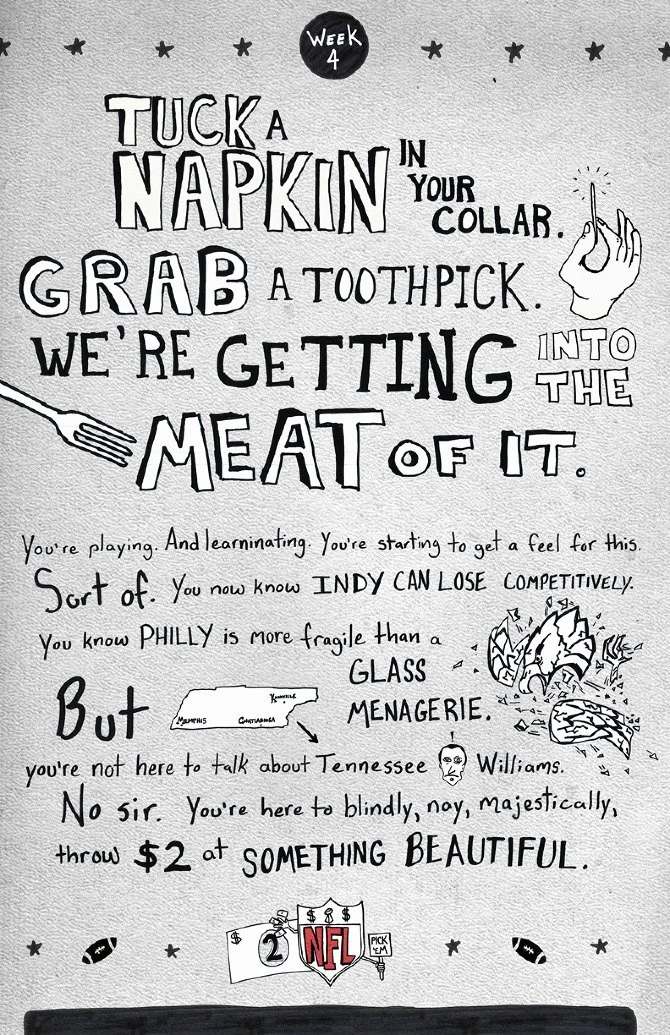 WEEK
4
TUCK A
NAPKIN IN
YOUR
COLLAR.
GRAB A TOOTHPICK.
WE'RE GETTING INTO
THE
MEAT OF IT.
You're playing. And learninating. You're starting to get a feel for this.
Sort of. You now know INDY CAN LOSE COMPETITIVELY.
You know PHILLY is more fragile than a
GLASS
MENAGERIE.
But
KNOXVILLE
MEMPHIS CHATTANOOGA
you're not here to talk about Tennessee Williams.
No sir. You're here to blindly, nay, majestically,
throw $2 at SOMETHING BEAUTIFUL.
$ $
$ 2 NFL PICK
'EM